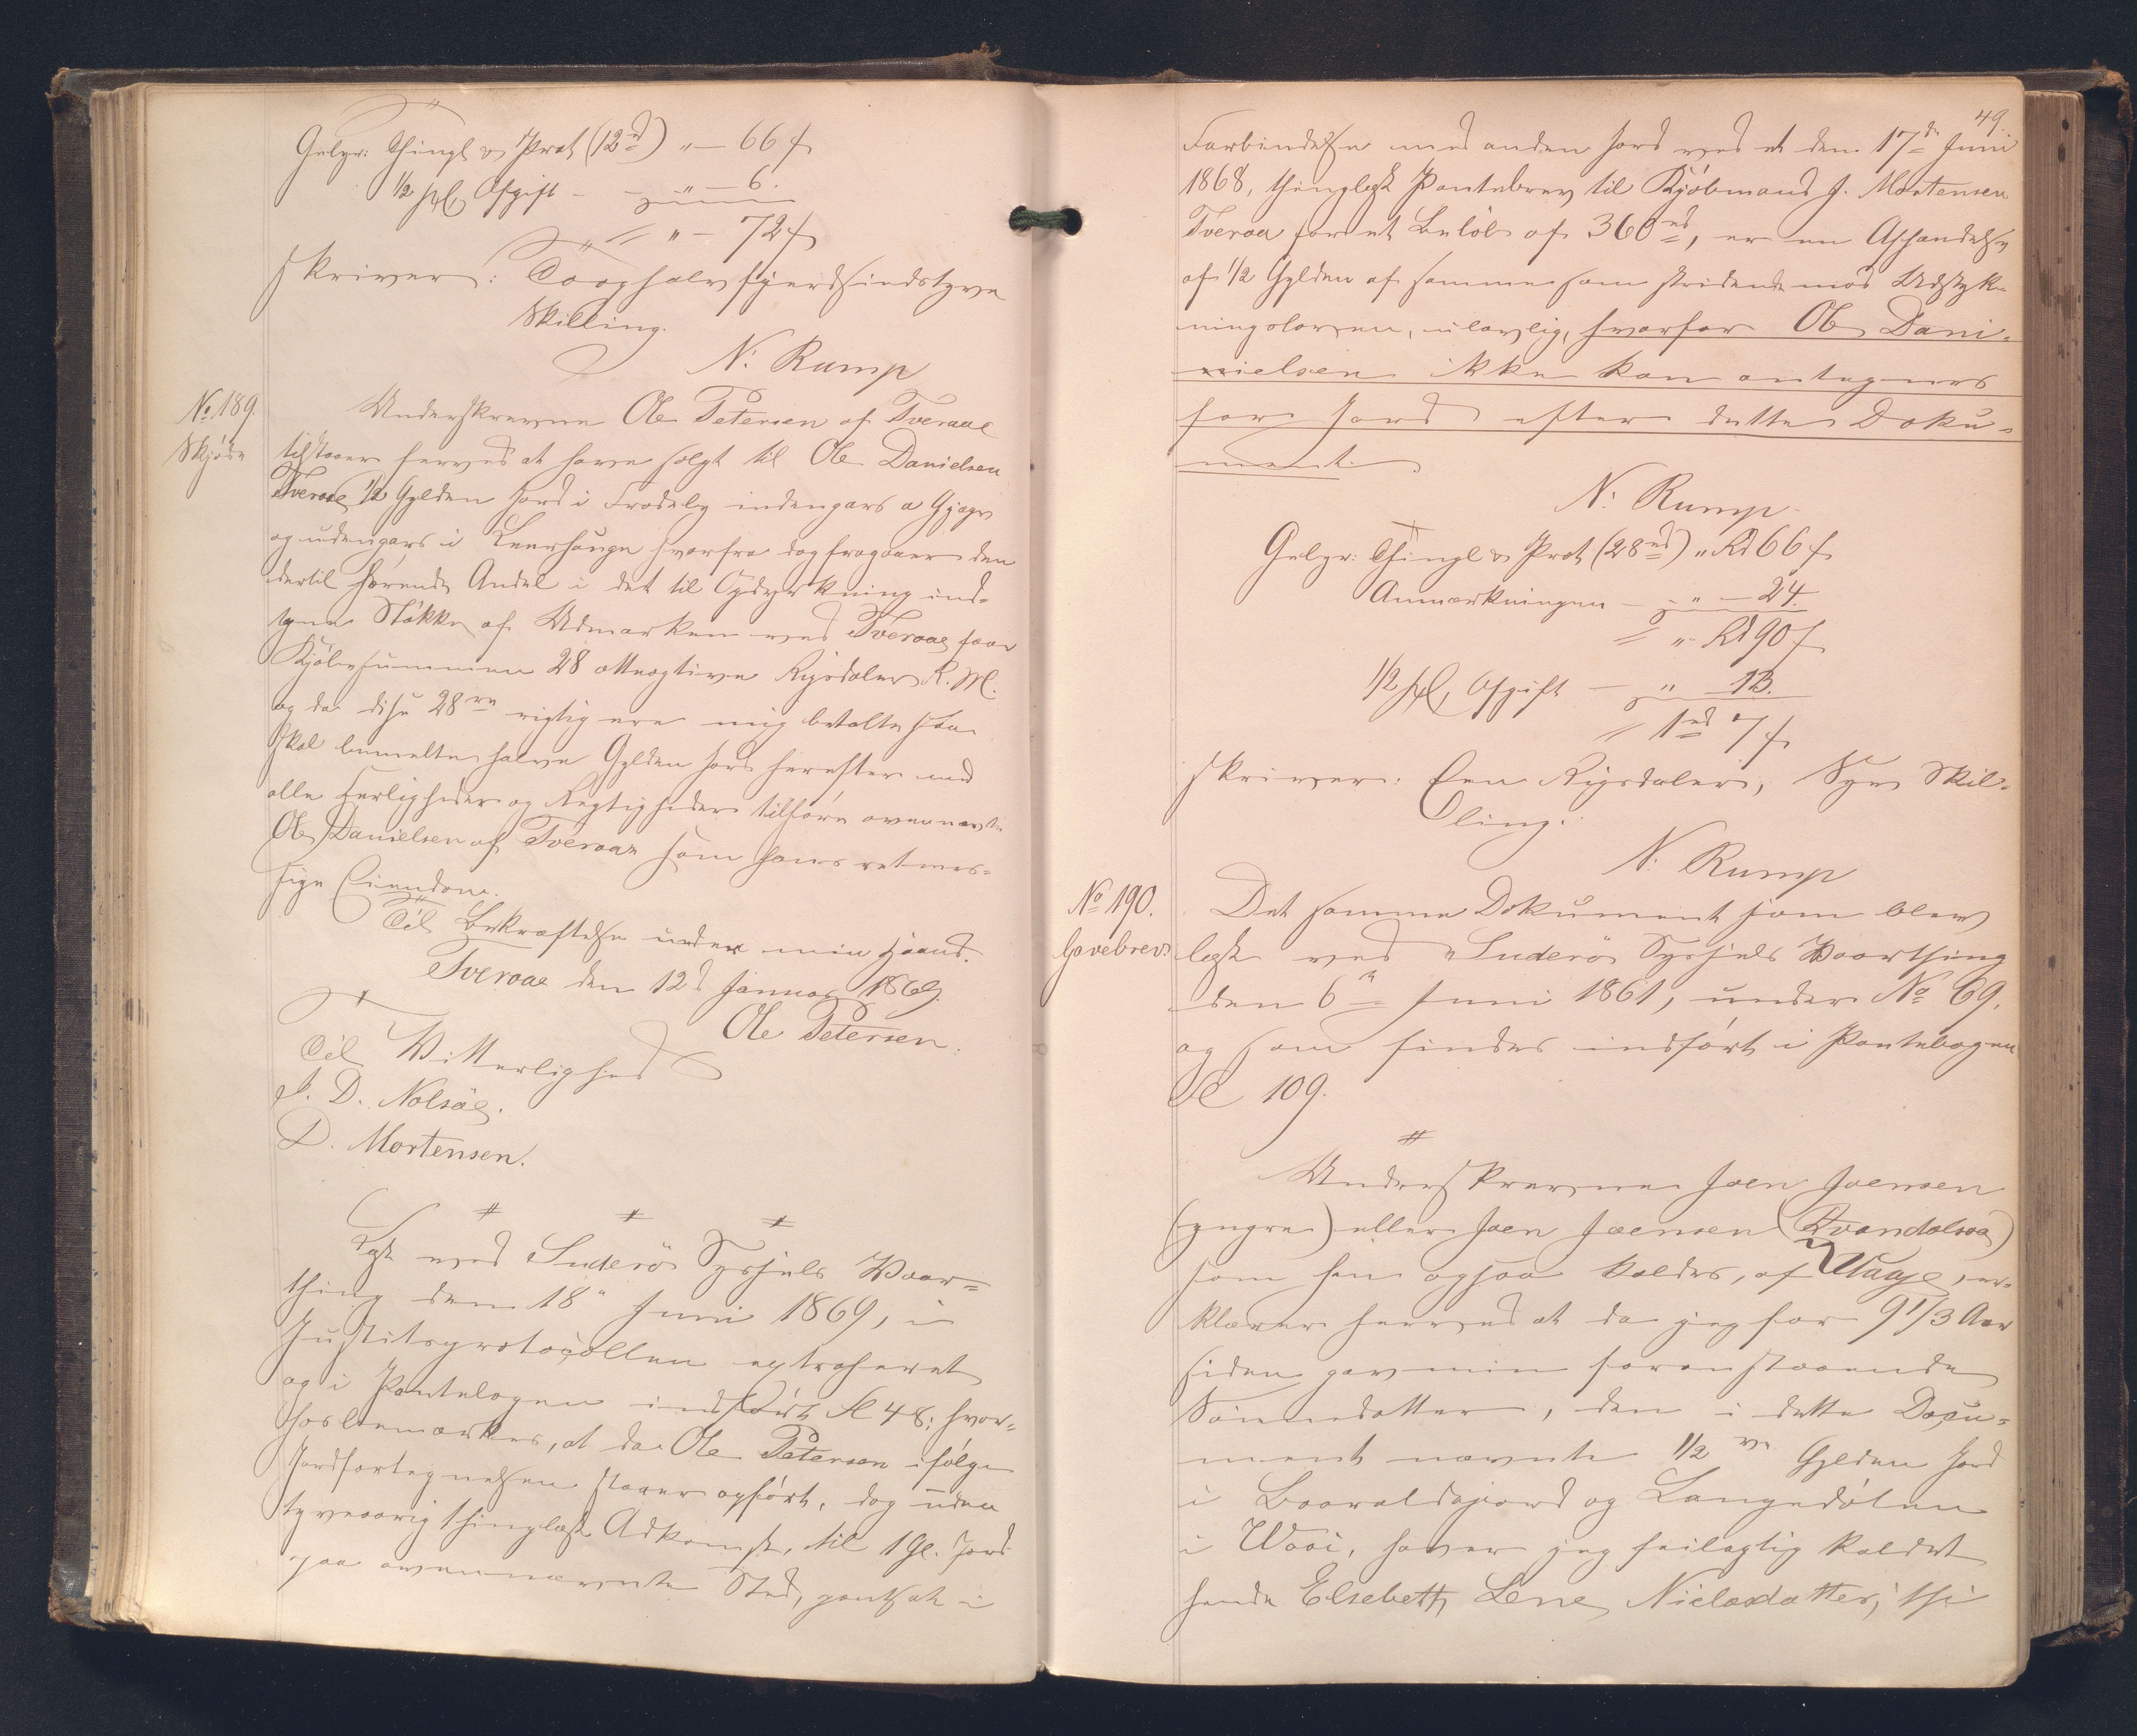 Gebyr: Thingl & Prot (12rd) " — 66 s
½ pCt Afgift — " — 6.
" — 72 s
skriver: Tooghalvfjerdsindstyve
Skilling.
N: Rump
No 189.
Skjøde
Underskrevne Ole Petersen af Tveraae
tilstaaer herved at have solgt til Ole Danielsen
Tveraae ½ Gylden Jord i Frodeby indengards
og udengards i Leerhauge hvorfra dog fragaaer den
dertil hørende Andel i det til Opdyrkning ind-
tagne Stökke af Udmarken ved Tveraae for
Kjöbesummen 28 otteogtive Rigsdaler R. M.
og da disse 28 rigtig ere mig betalte saa
skal bemeldte halve Gylden Jord herefter med
alle Herligheder og Regtigheder tilhøre ovennævnte
Ole Danielsen af Tveraae som hans retmæs-
sige Eiendom.
Til Bekræftelse under min Haand.
Tveraae den 12d Januar 1869.
Ole Petersen.
Til Vitterlighed
J. D. Nolsöe.
D. Mortensen.
Læst ved Suderö Syssels Vaar-
thing den 18" Juni 1869, i
Justitsprotocollen extraheret
og i Pantebogen indført Fol 48; hvor-
hos bemærkes, at da Ole Petersen ifølge
Jordfortegnelsen staaer opført, dog uden
tyveaarig thinglæst Adkomst, til 1 Gl. Jord
paa ovennævnte Sted, pantsat i
49.
Forbindelse med anden Jord ved et den 17de Juni
1868, thinglæst Pantebrev til Kjöbmand J. Mortensen
Tveraa for et Belöb af 360 rd, er en Afhændelse
af ½ Gylden af samme som stridende mod Udstyk-
ningsloven, ulovlig, hvorfor Ole Dani-
nielsen ikke kan antegnes
for Jord efter dette Doku-
ment.
N: Rump
Gebyr: Thingl & Prot (28rd) " Rd 66 s
Anmærkningen — " — 24.
" Rd 90 s
½ pCt, Afgift — " 13.
1rd 7 s
skriver: Een Rigsdaler, Syv Skil-
ling.
N: Rump
No 190.
Gavebrev.
Det samme Dokument som blev
læst ved Suderö Syssels Vaarthing
den 6te Juni 1861, under No 69,
og som findes indført i Pantebogen
Fol 109.
Underskrevne Joen Joensen
(yngre) eller Joen Joensen (Qvandalsaa)
som han ogsaa kaldes, af Waaje, er-
klærer herved at da jeg for 9 1/3 Aar
siden gav min foranstaaende
Sönnedatter, den i dette Docu-
ment nævnte ½ Gylden Jord
i og Langedölen
i Waai, haver jeg feilagtig kaldet
hende Elsebeth Lene Nielsdatter; thi